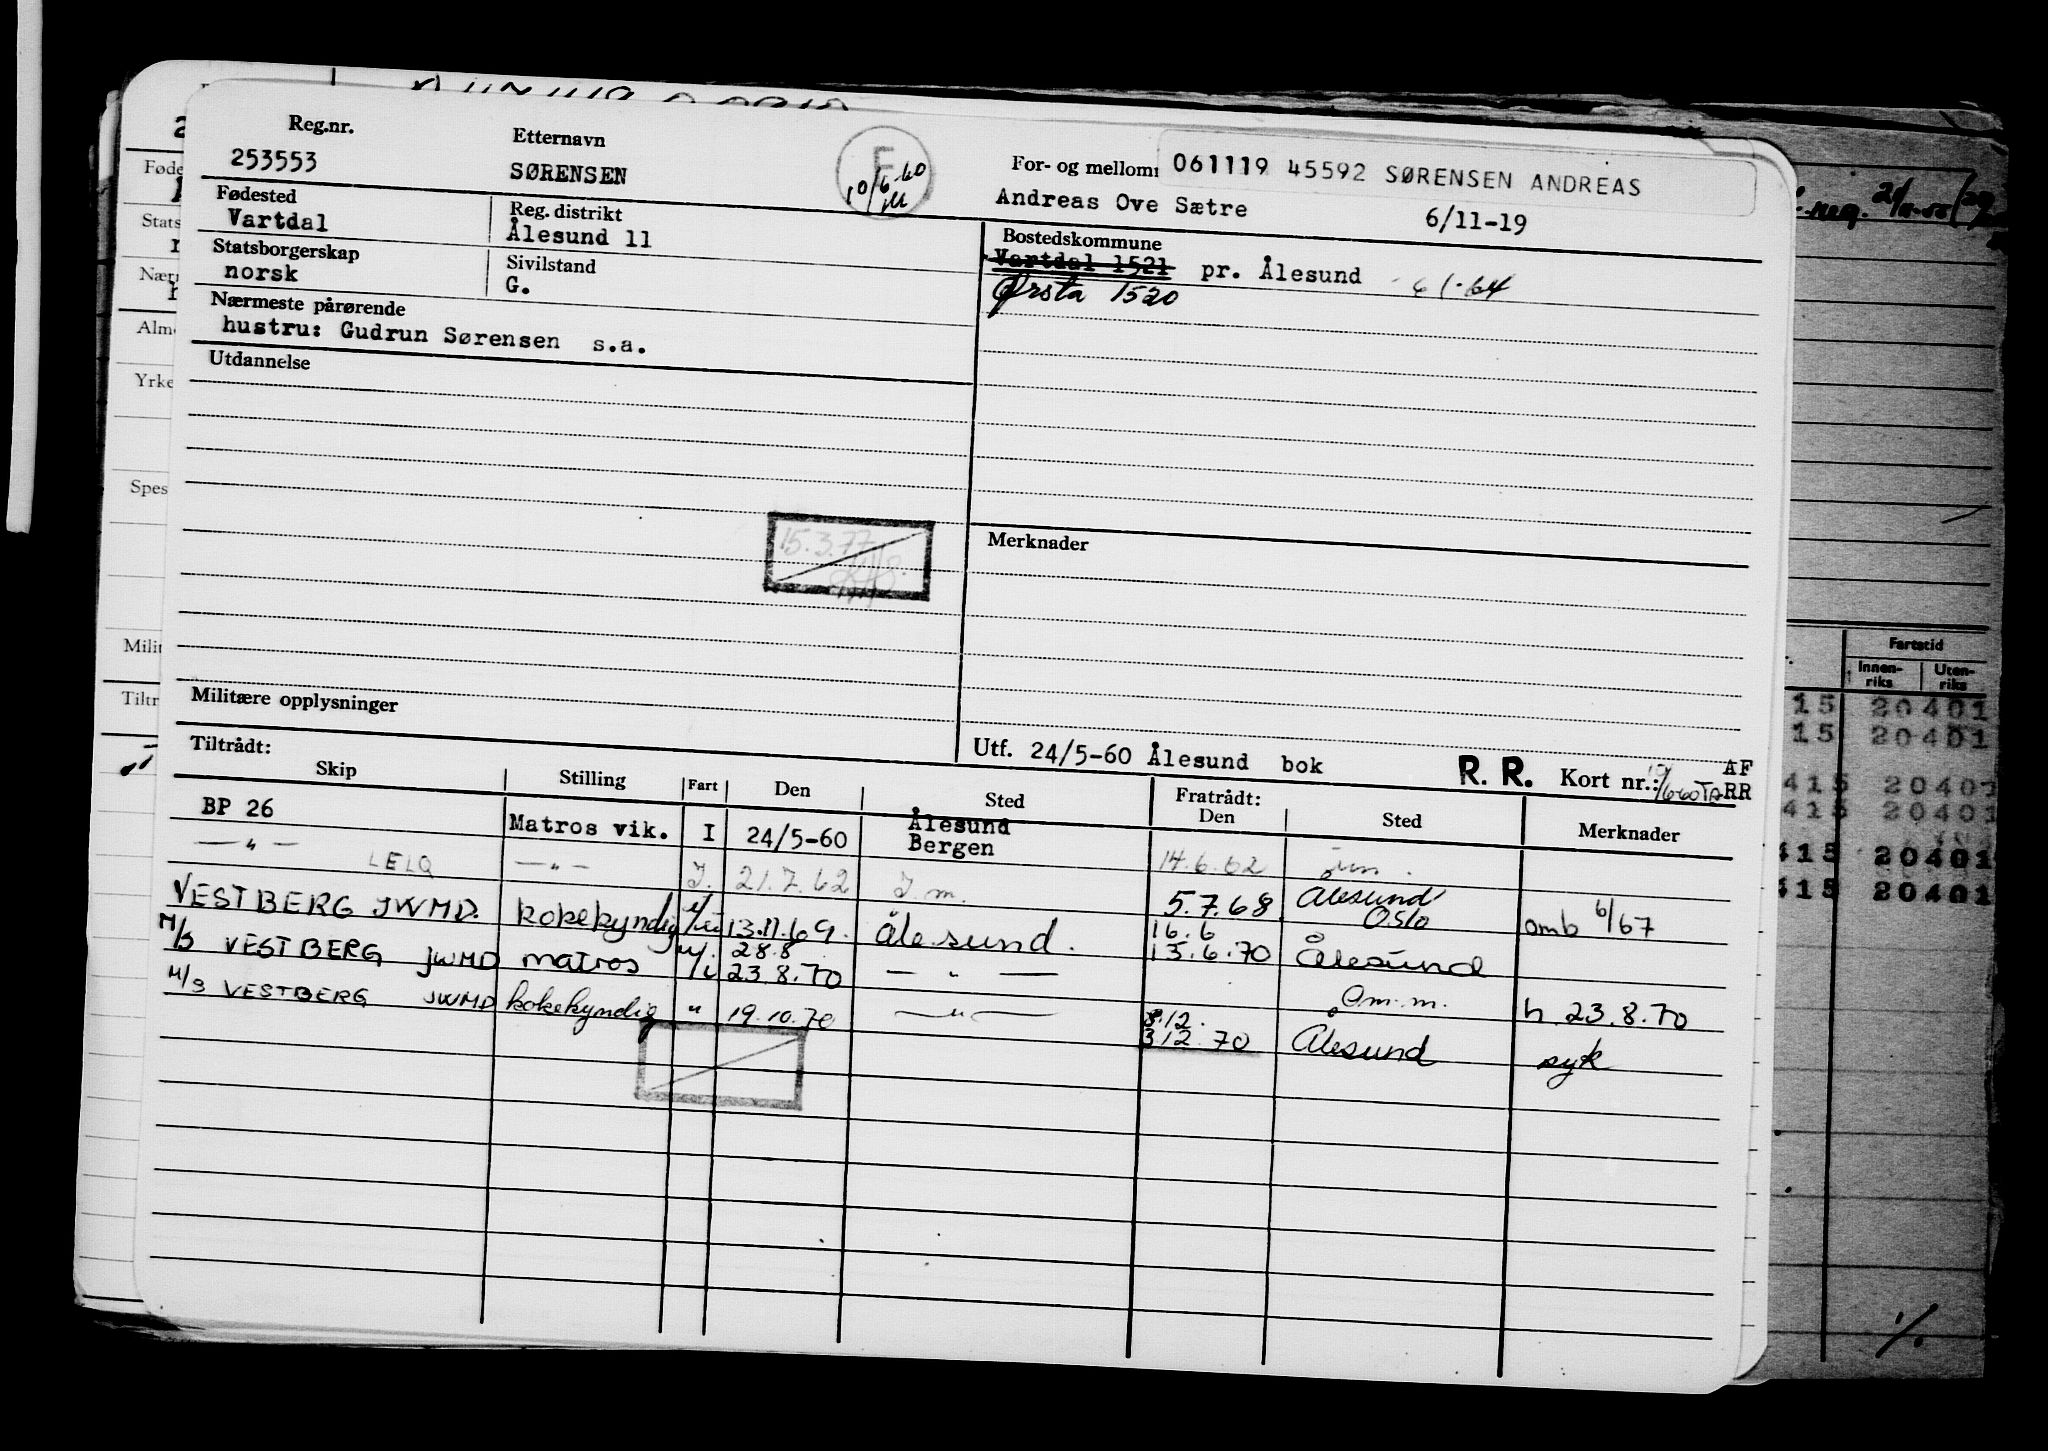 Reg.nr.
253553
Etternavn
SØRENSEN
F
10/6.60
For- og mellom
061119 45592 SØRENSEN ANDREAS
Andreas Ove Sætre
6/11-19
Fødested
Vartdal
Reg. distrikt
Ålesund 11
Statsborgerskap
norsk
Sivilstand
G.
Bostedskommune
Vartdal 1521 pr. Ålesund
Ørsta 1520
Nærmeste pårørende
hustru: Gudrun Sørensen s.a.
Utdannelse
15.3.77
Merknader
Militære opplysninger
Utf. 24/5-60 Ålesund bok
R. R. Kort nr.:
AF
RR
Tiltrådt:
Skip Stilling Fart Den Sted Fratrådt: Den Sted Merknader
BP 26 Matros vik. I 24/5-60 Ålesund
Bergen
— " — LELQ — " — I. 21.7.62 I.m. 14.6.62
VESTBERG JWMD. kokekyndig 13.11.69. Ålesund. 5.7.68 Ålesund
Oslo omb 6/67
M/S VESTBERG JWMD matros u/i 28.8
23.8.70 — " — 16.6
15.6.70 Ålesund
M/S VESTBERG JWMD kokekyndig " 19.10.70 — " — Om.m. h 23.8.70
8.12.
3 12.70 Ålesund syk
Føde
Stats
Nær
Alm
Yrke
Spes
Milit
Tiltr
Fartstid
Innen-
riks
Uten-
riks
15 20401
15 20401
415 20401
415 20401
415 20401
415 20401